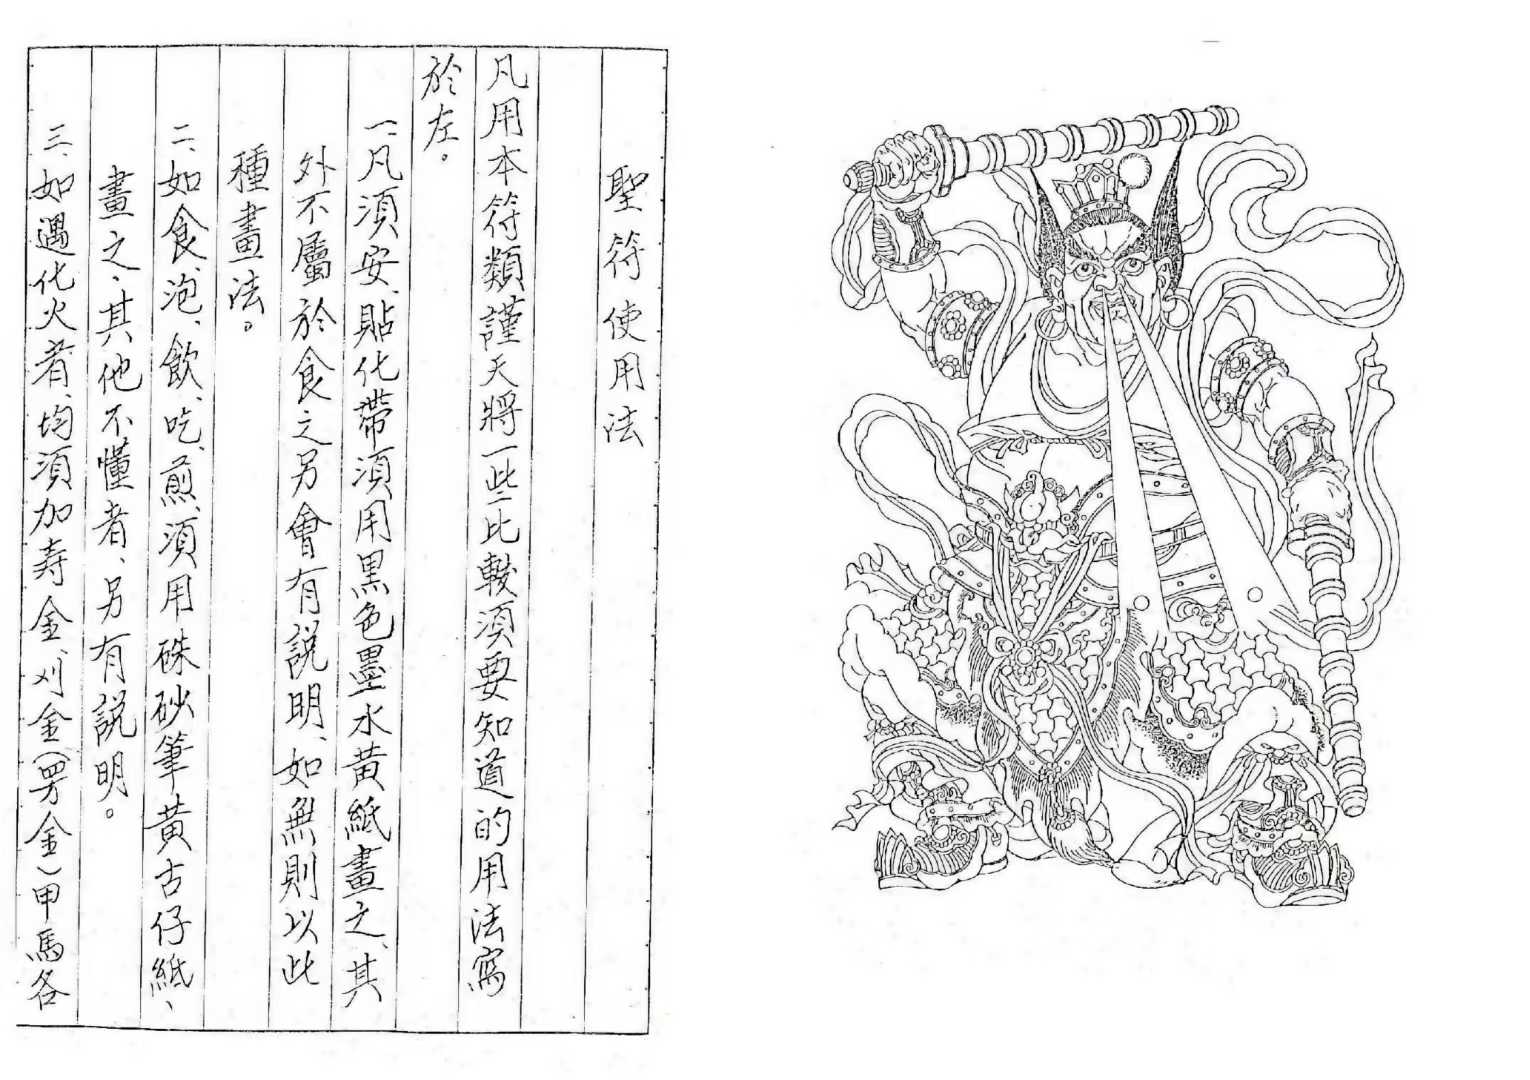 聖符使用法
凡用本符類謹天將一些比較須要知道的用法寫
於左。
一、凡須安、貼化帶須用黑色墨水黃紙畫之、其
外不屬於食之另會有說明、如無則以此
種畫法。
二、如食、泡、飲、吃、煎、須用硃砂筆黃古仔紙、
畫之、其他不懂者、另有說明。
三、如遇化火者、均須加寿金、刈金(四方金)甲馬各